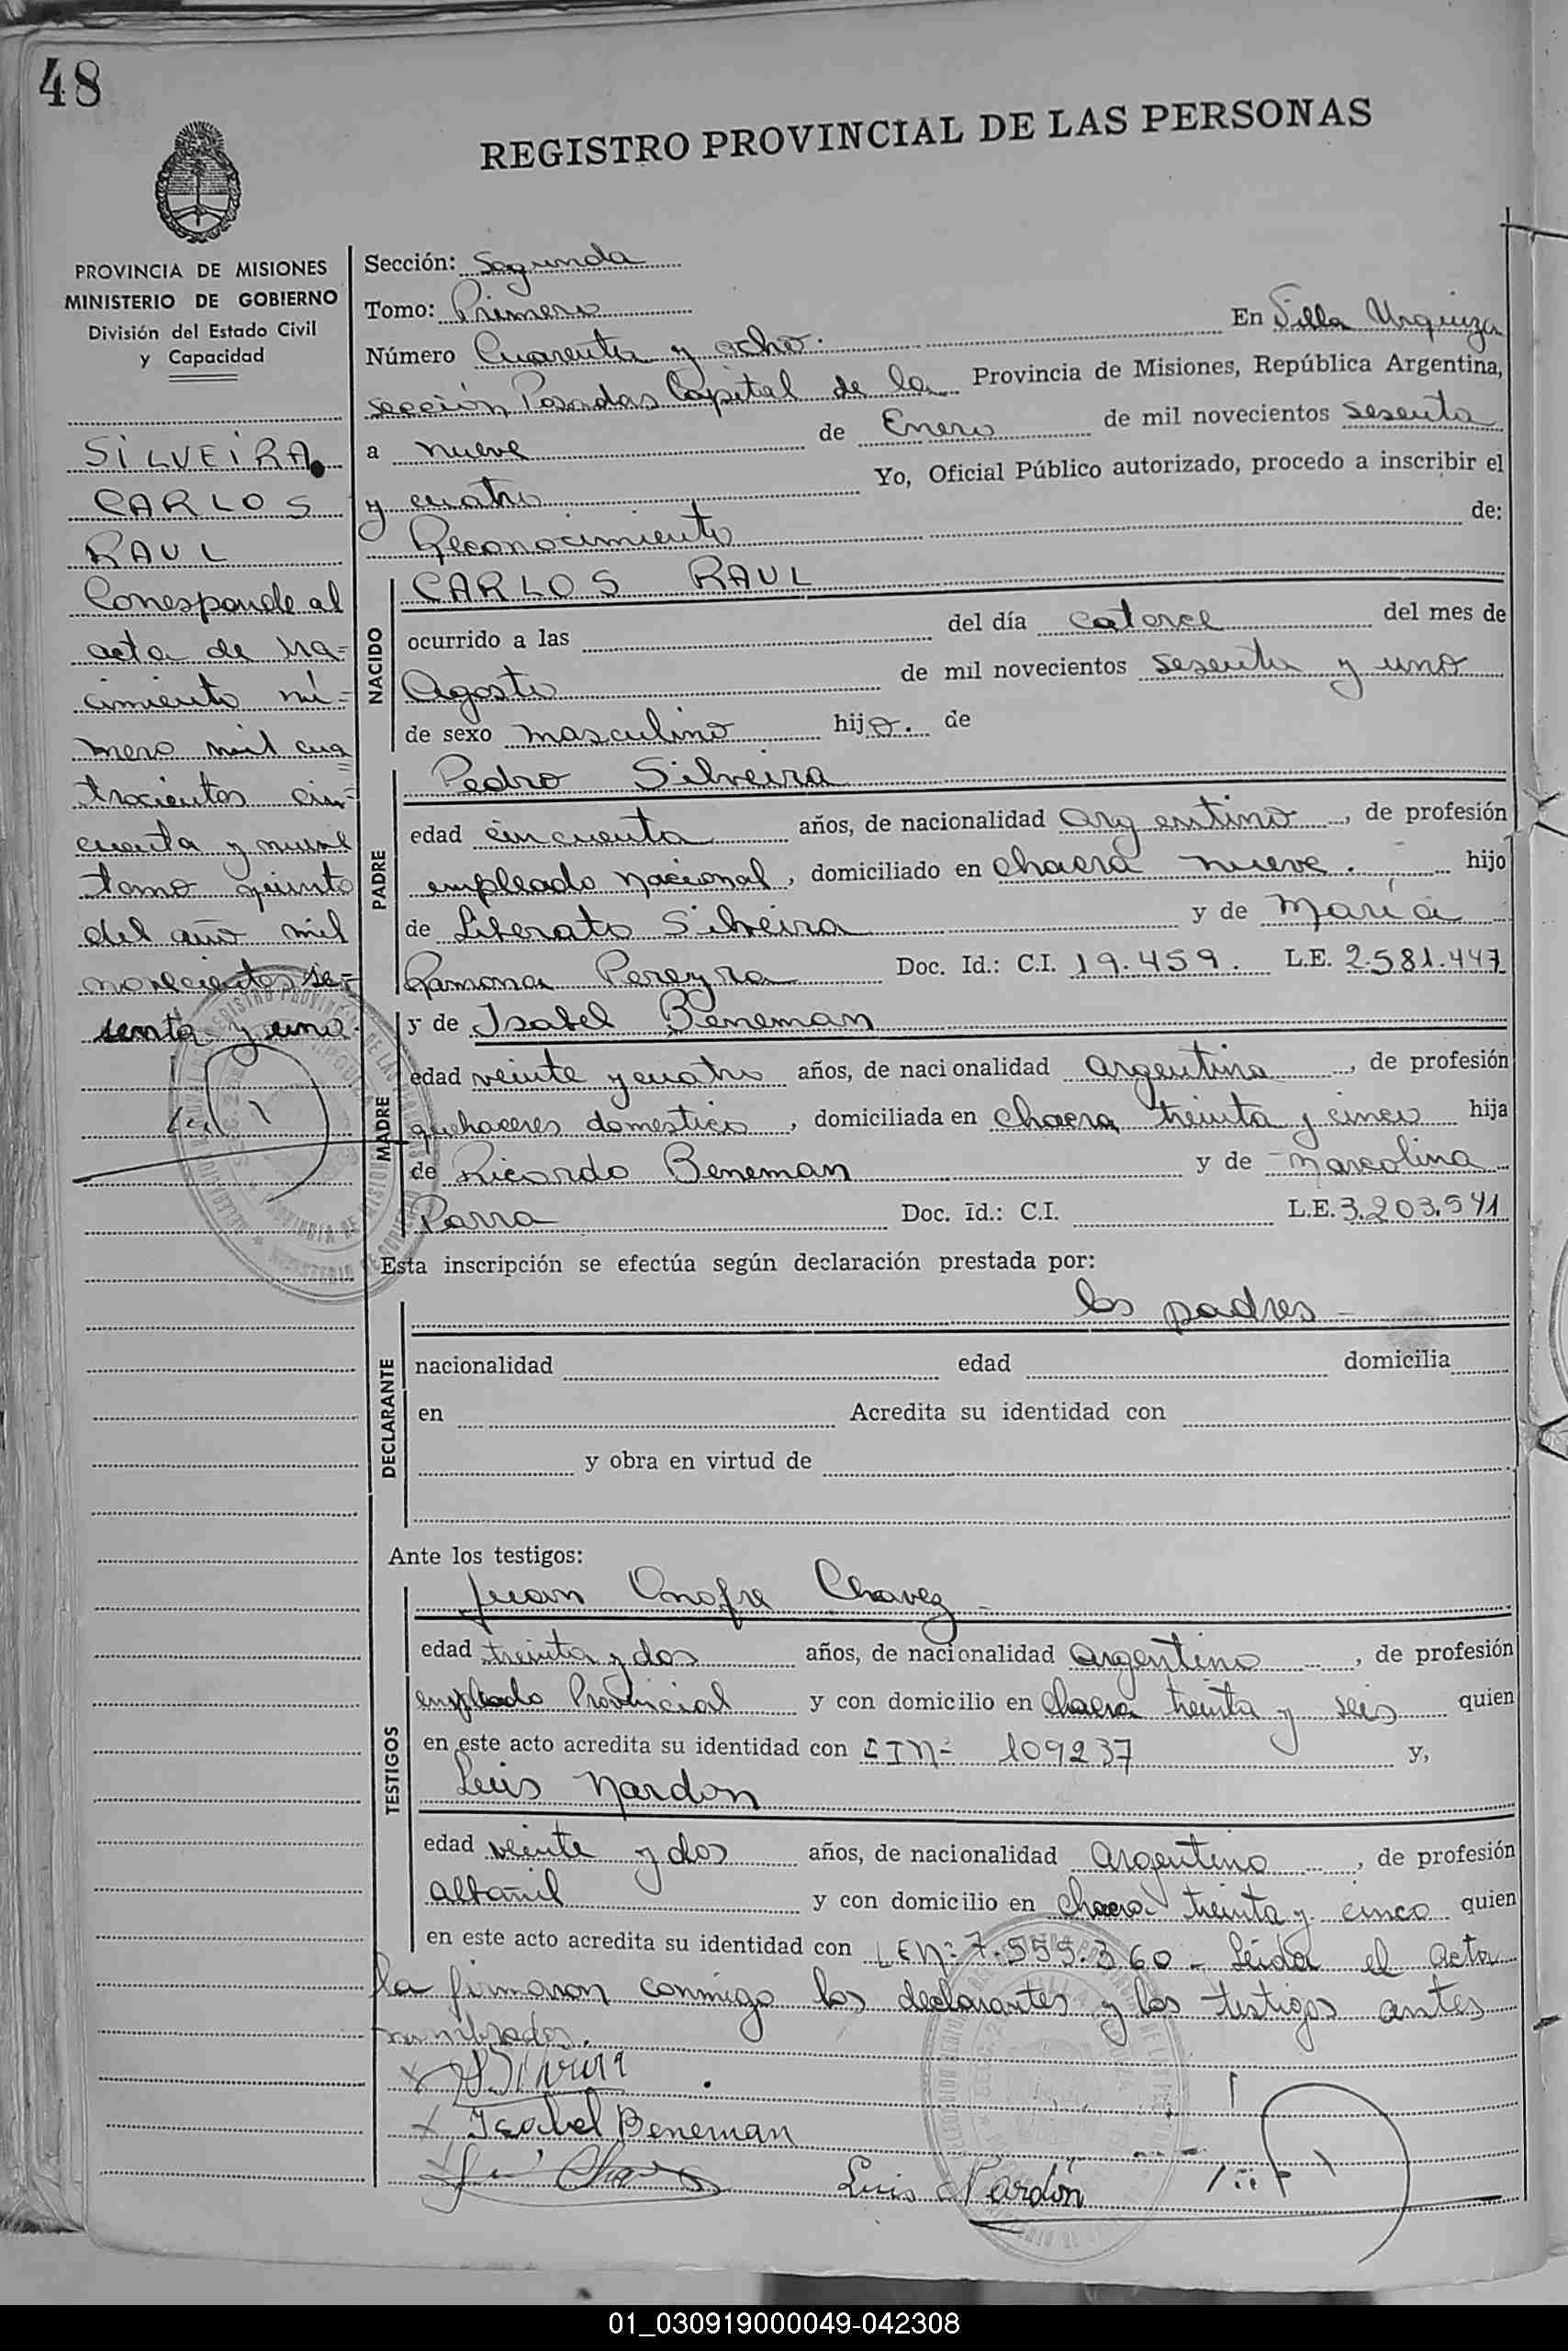 48
REGISTRO PROVINCIAL DE LAS PERSONAS
PROVINCIA DE MISIONES
MINISTERIO DE GOBIERNO
División del Estado Civil
y Capacidad
SILVEIRA
CARLOS
RAUL
Corresponde al
acta de na=
cimiento nú=
mero mil cua
trocientos cin=
cuenta y nueve
tomo quinto
del año mil
novecientos se-
senta y uno.
Sección: Segunda
Tomo: Primero
Número Cuarenta y ocho. En Villa Urquiza
sección Posadas Capital de la Provincia de Misiones, República Argentina,
a nueve de Enero de mil novecientos sesenta
y cuatro Yo, Oficial Público autorizado, procedo a inscribir el
Reconocimiento de:
NACIDO
CARLOS RAUL
ocurrido a las del día catorce del mes de
Agosto de mil novecientos sesenta y uno
de sexo masculino hijo. de
PADRE
Pedro Silveira
edad cincuenta años, de nacionalidad argentino, de profesión
empleado nacional, domiciliado en chacra nueve. hijo
de Liberato Silveira y de María
Ramona Pereyra Doc. Id.: C.I. 19.459. L.E. 2.581.447
MADRE
y de Isabel Beneman
edad veinte y cuatro años, de nacionalidad argentina, de profesión
quehaceres domestico, domiciliada en chacra treinta y cinco hija
de Ricardo Beneman y de Marcolina
Parra Doc. Id.: C.I. L.E. 3.203.541
Esta inscripción se efectúa según declaración prestada por:
los padres -
DECLARANTE
nacionalidad edad domicilia
en Acredita su identidad con
y obra en virtud de
Ante los testigos:
TESTIGOS
Juan Onofre Chavez -
edad treinta y dos años, de nacionalidad argentino, de profesión
empleado Provincial y con domicilio en chacra treinta y seis quien
en este acto acredita su identidad con CIN= 109237 y,
Luis Nardon
edad veinte y dos años, de nacionalidad argentino, de profesión
albañil y con domicilio en chacra treinta y cinco quien
en este acto acredita su identidad con LEN: 7.555.360 - Leída el acta
la firmaron conmigo los declarantes y los testigos antes
nombrados.
Isabel Beneman
Chavez
Luis Nardón
01_030919000049-042308